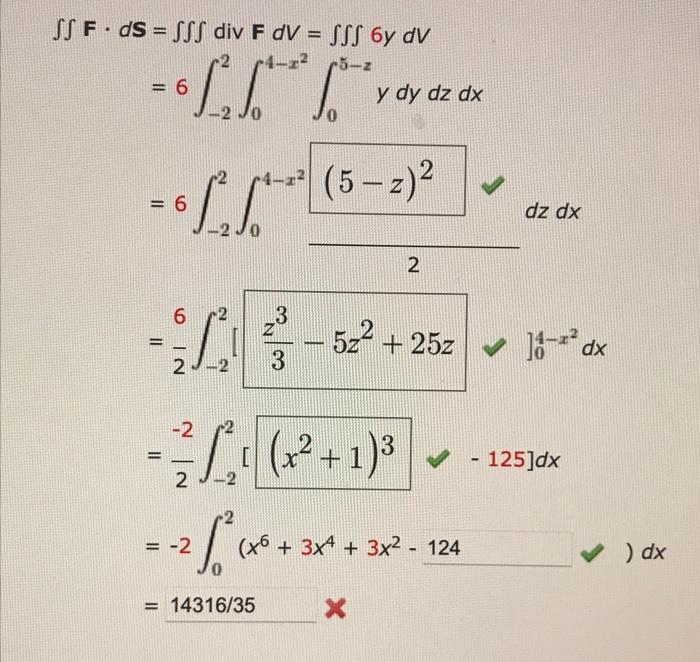 ∫∫ F · dS = ∫∫∫ div F dV = ∫∫∫ 6y dV
= 6 ∫_{-2}^{2} ∫_{0}^{4-x²} ∫_{0}^{5-z} y dy dz dx
= 6 ∫_{-2}^{2} ∫_{0}^{4-x²} (5 – z)² / 2 dz dx
= 6/2 ∫_{-2}^{2} [ z³/3 – 5z² + 25z ]_{0}^{4-x²} dx
= -2/2 ∫_{-2}^{2} [ (x² + 1)³ - 125]dx
= -2 ∫_{0}^{2} (x⁶ + 3x⁴ + 3x² - 124 ) dx
= 14316/35